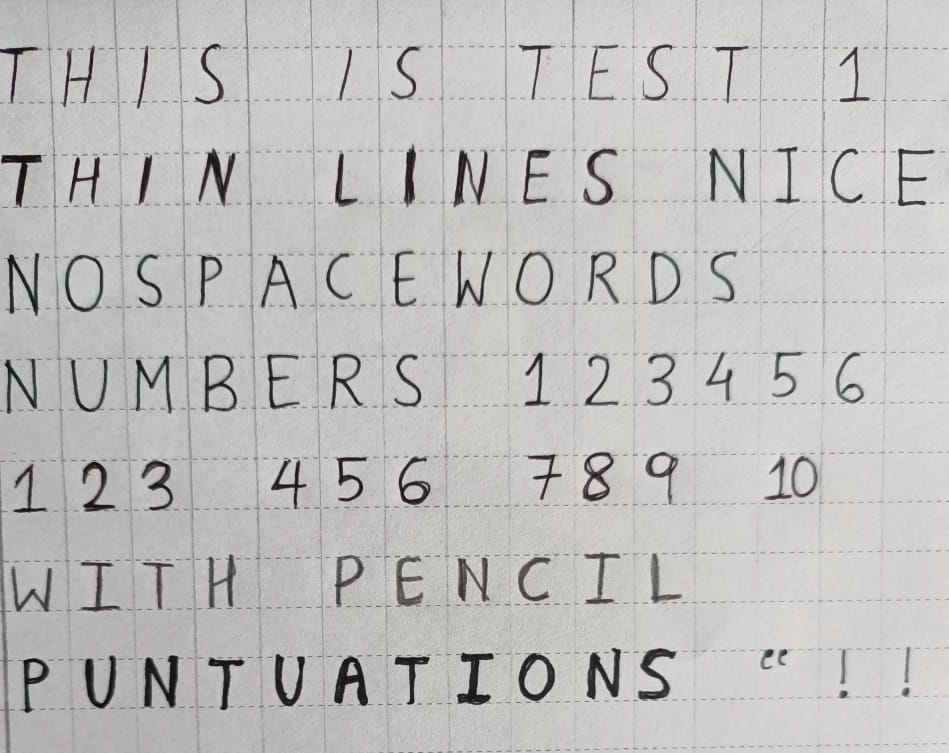 THIS IS TEST 1
THIN LINES NICE
NOSPACEWORDS
NUMBERS 123456
123 456 789 10
WITH PENCIL
PUNTUATIONS “ ! !